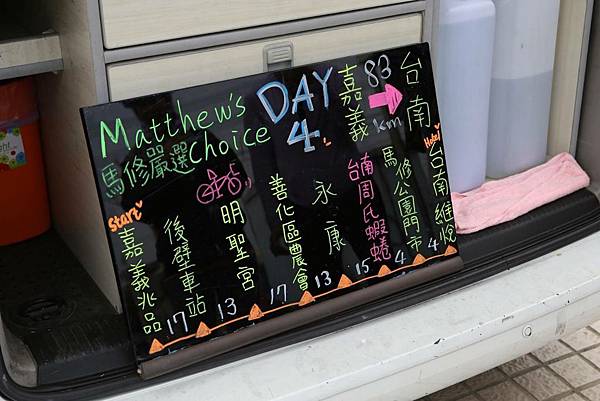 Matthew's
Choice
馬修嚴選
DAY
4
嘉義
83
km
台南
Start
嘉義兆品
17
後壁車站
13
明聖宮
17
善化區農會
13
永康
15
台南周氏蝦蜷
4
馬修公園門市
4
Hotel
台南維悅